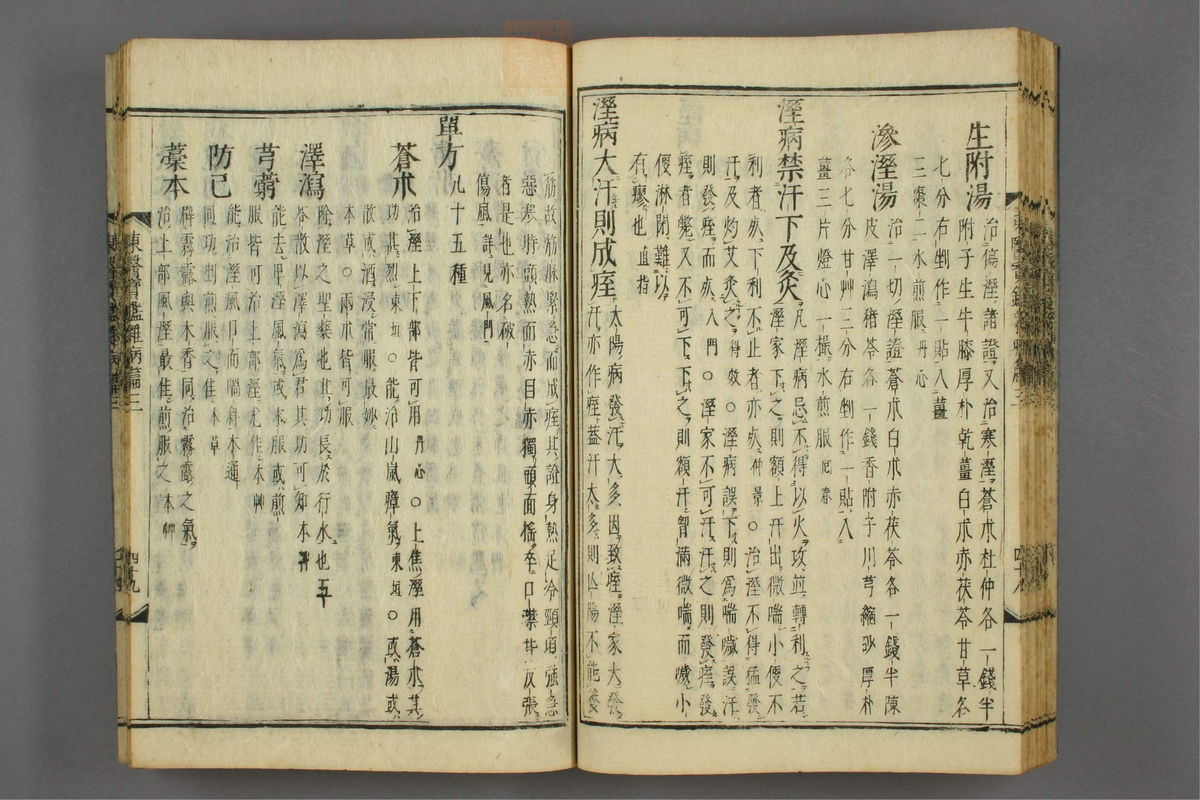 生附湯 治傷溼諸證又治寒溼蒼朮杜仲各一錢半
附子生牛膝厚朴乾薑白朮赤茯苓甘草各
七分右剉作一貼入薑
三棗二水煎服丹心
滲溼湯 治一切溼證蒼朮白朮赤茯苓各一錢半陳
皮澤瀉猪苓各一錢香附子川芎縮砂厚朴
各七分甘艸三分右剉作一貼入
薑三片燈心一撮水煎服回春
溼病禁汗下及灸 凡溼病忌不得以火攻並轉利之若
溼家下之則額上汗出微喘小便不
利者死下利不止者亦死仲景○治溼不得猛發
汗及灼艾灸之得效○溼病誤下則爲喘噦誤汗
則發痓而死入門○溼家不可汗汗之則發痓發
痓者斃又不可下下之則額汗胷滿微喘而噦小
便淋閉難以
有瘳也直指
溼病大汗則成痓 太陽病發汗大多因致痓溼家大發
汗亦作痓蓋汗太多則亾陽不能養
筋故筋脉緊急而成痓其證身熱足冷頸項強急
惡寒時頭熱面赤目赤獨頭面搖卒口噤背反張
者是也亦名破
傷風詳見風門
單方 凡十五種
蒼朮 治溼上下部皆可用丹心○上焦溼用蒼朮其
功甚烈東垣○能治山嵐瘴氣東垣○或湯或
散或酒浸常服最妙
本草○兩朮皆可服
澤瀉 除溼之聖藥也其功長於行水也五
苓散以澤瀉爲君其功可知本艸
芎藭 能去卑溼風氣或末服或煎
服皆可治上部溼尤佳本艸
防己 能治溼風口面喎斜木通
同功剉煎服之佳本草
藁本 辟霧露與木香同治霧露之氣
治上部風溼最佳煎服之本艸
東醫寶鑑雜病篇三
四十九